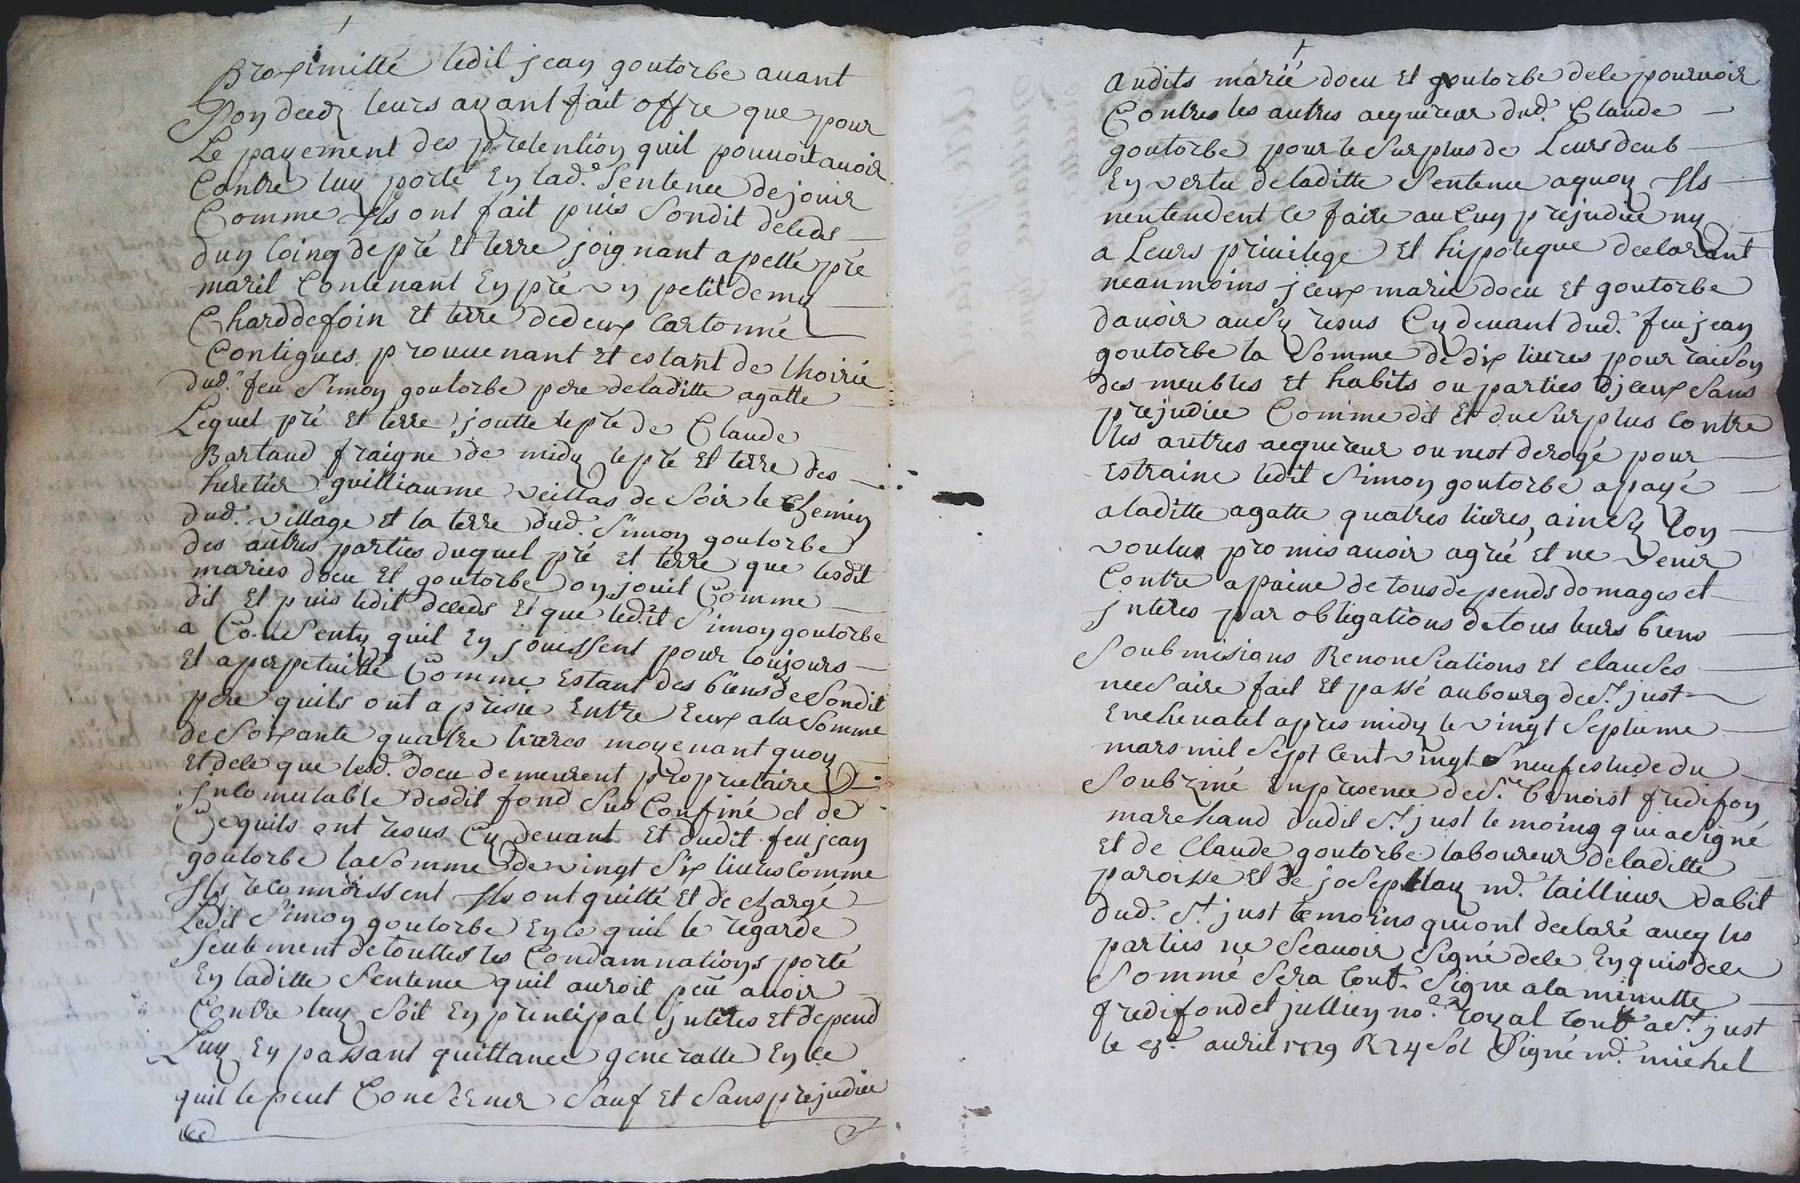 proximitté ledit jean goutorbe auant
son deedz leurs ayant fait offre que pour
Le payement des pretention quil pouuoit auoir
Contre luy porté En lad.e Sentence de jouir
Comme Ils ont fait puis Sondit deleds
dun loing de pré Et terre joignant apellé pré
maril Contenant En pré un petit demy
Chard de foin Et terre de deux Cartonné
Contigues prouuenant Et estant de lhoirié
dud. feu Simon goutorbe pere de laditte agatte
Lequel pré Et terre joutte le pré de Claude
Bartaud fraigne de midy le pré Et terre des
heretier guilliaume veillas de Soir le Chemin
dud. village Et la terre dud. Simon goutorbe
des autres parties duquel pré Et terre que lesdit
mariés docu Et goutorbe on jouit Comme
dit Et puis ledit deleds Et que ledit Simon goutorbe
a Consenty quil En jouissent pour toujours
Et a perpetuitté Comme Estant des biens de Sondit
pere quils ont aprisié Entre Eeux a la Somme
de Soixante quatre liures moyenant quoy
Et dele que lesd. docu demeurent proprietaire
Incomutable desdit fond Sus Confiné et de
Ce quils ont resus Cy deuant Et dudit feu jean
goutorbe la Somme de vingt Six liures Comme
Ils reconnoissent Ils ont quitté Et dechargé
Ledit Simon goutorbe En ce quil le regarde
Seulement de touttes les Condamnations porté
En laditte Sentence quil auroit peu auoir
Contre luy Soit En principal jnteres Et depend
Luy En passant quittance generalle En ce
quil le peut Conserner Sauf Et Sans prejudice
audits marié docu Et goutorbe dele pouruoir
Contres les autres acquereur dud. Claude
goutorbe pour le Surplus de Leurs deub
En vertu de laditte Sentence a quoy Ils
nentendent ce faire aucun prejudice ny
a Leurs priuilege Et hipoteque declarant
neanmoins jceux marié docu Et goutorbe
dauoir aussy resus Cy deuant dud. feu jean
goutorbe la Somme de dix liures pour raison
des meubles Et habits ou parties djceux Sans
prejudice Comme dit Et du Surplus Contre
les autres acquereur ou nest derogé pour
Estraine ledit Simon goutorbe a payé
a laditte agatte quatres liures, ainsy lon
voulus promis auoir agrée Et ne venir
Contre a paine de tous depends domages et
jnteres par obligations de tous leurs biens
Soubmisions Renonciations Et clauses
necesaire fait Et passé au bourg de St just
En cheualet apres midy le vingt Septieme
mars mil Sept Cent vingt neuf estude du
Soubziné En presence de Sr. benoist fredifon
marchand dudit St just temoing qui a Signé
Et de Claude goutorbe laboureur de laditte
paroisse Et de joseph md. taillieur dabit
dud. St just temoins qui ont declaré auec les
parties ne Scauoir Signé dele Enquis dele
Sommé Sera Cont. Signe a la minutte
fredifond et jullien nore. royal Cont. a St just
le avril 1729 R 24 Sol Signé michel